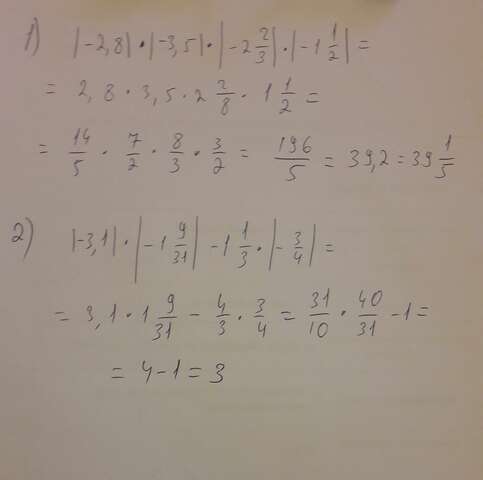 1) |-2,8|·|-3,5|·|-2 2/3|·|-1 1/2| =
= 2,8 · 3,5 · 2 2/8 · 1 1/2 =
= 14/5 · 7/2 · 8/3 · 3/2 = 196/5 = 39,2 = 39 1/5
2) |-3,1|·|-1 9/31| - 1 1/3 · |-3/4| =
= 3,1 · 1 9/31 - 4/3 · 3/4 = 31/10 · 40/31 - 1 =
= 4 - 1 = 3